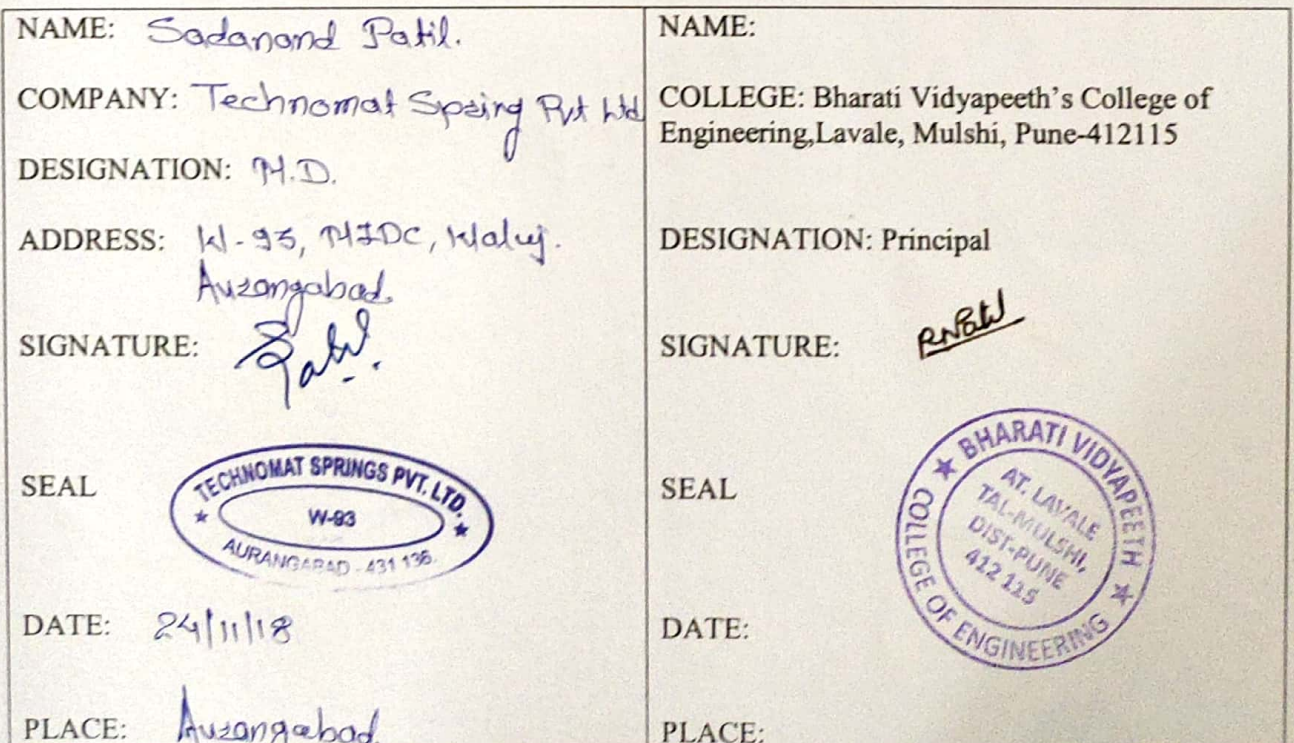 NAME: Sadanand Patil.
COMPANY: Technomat Spring Pvt Ltd
DESIGNATION: M.D.
ADDRESS: W-93, MIDC, Waluj.
Aurangabad.
SIGNATURE: Patil.
SEAL
TECHNOMAT SPRINGS PVT. LTD.
W-93
AURANGABAD - 431 136.
DATE: 24/11/18
PLACE: Aurangabad
NAME:
COLLEGE: Bharati Vidyapeeth's College of
Engineering,Lavale, Mulshi, Pune-412115
DESIGNATION: Principal
SIGNATURE: RNPatil
SEAL
BHARATI VIDYAPEETH
COLLEGE OF ENGINEERING
AT. LAVALE
TAL-MULSHI,
DIST-PUNE
412 115
DATE:
PLACE: